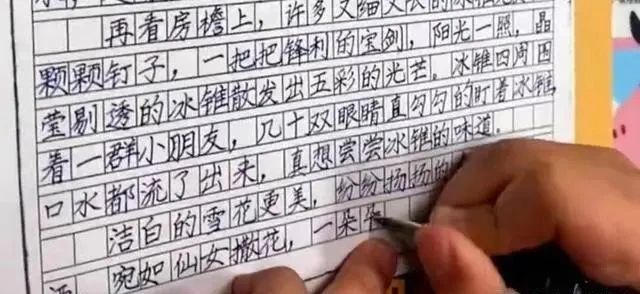 再看房檐上，许多又细又长的冰锥
颗颗钉子，一把把锋利的宝剑，阳光一照，晶
莹剔透的冰锥散发出五彩的光芒。冰锥四周围
着一群小朋友，几十双眼睛直勾勾的盯着冰锥，
口水都流了出来，真想尝尝冰锥的味道。
洁白的雪花更美，纷纷扬扬的
宛如仙女撒花，一朵